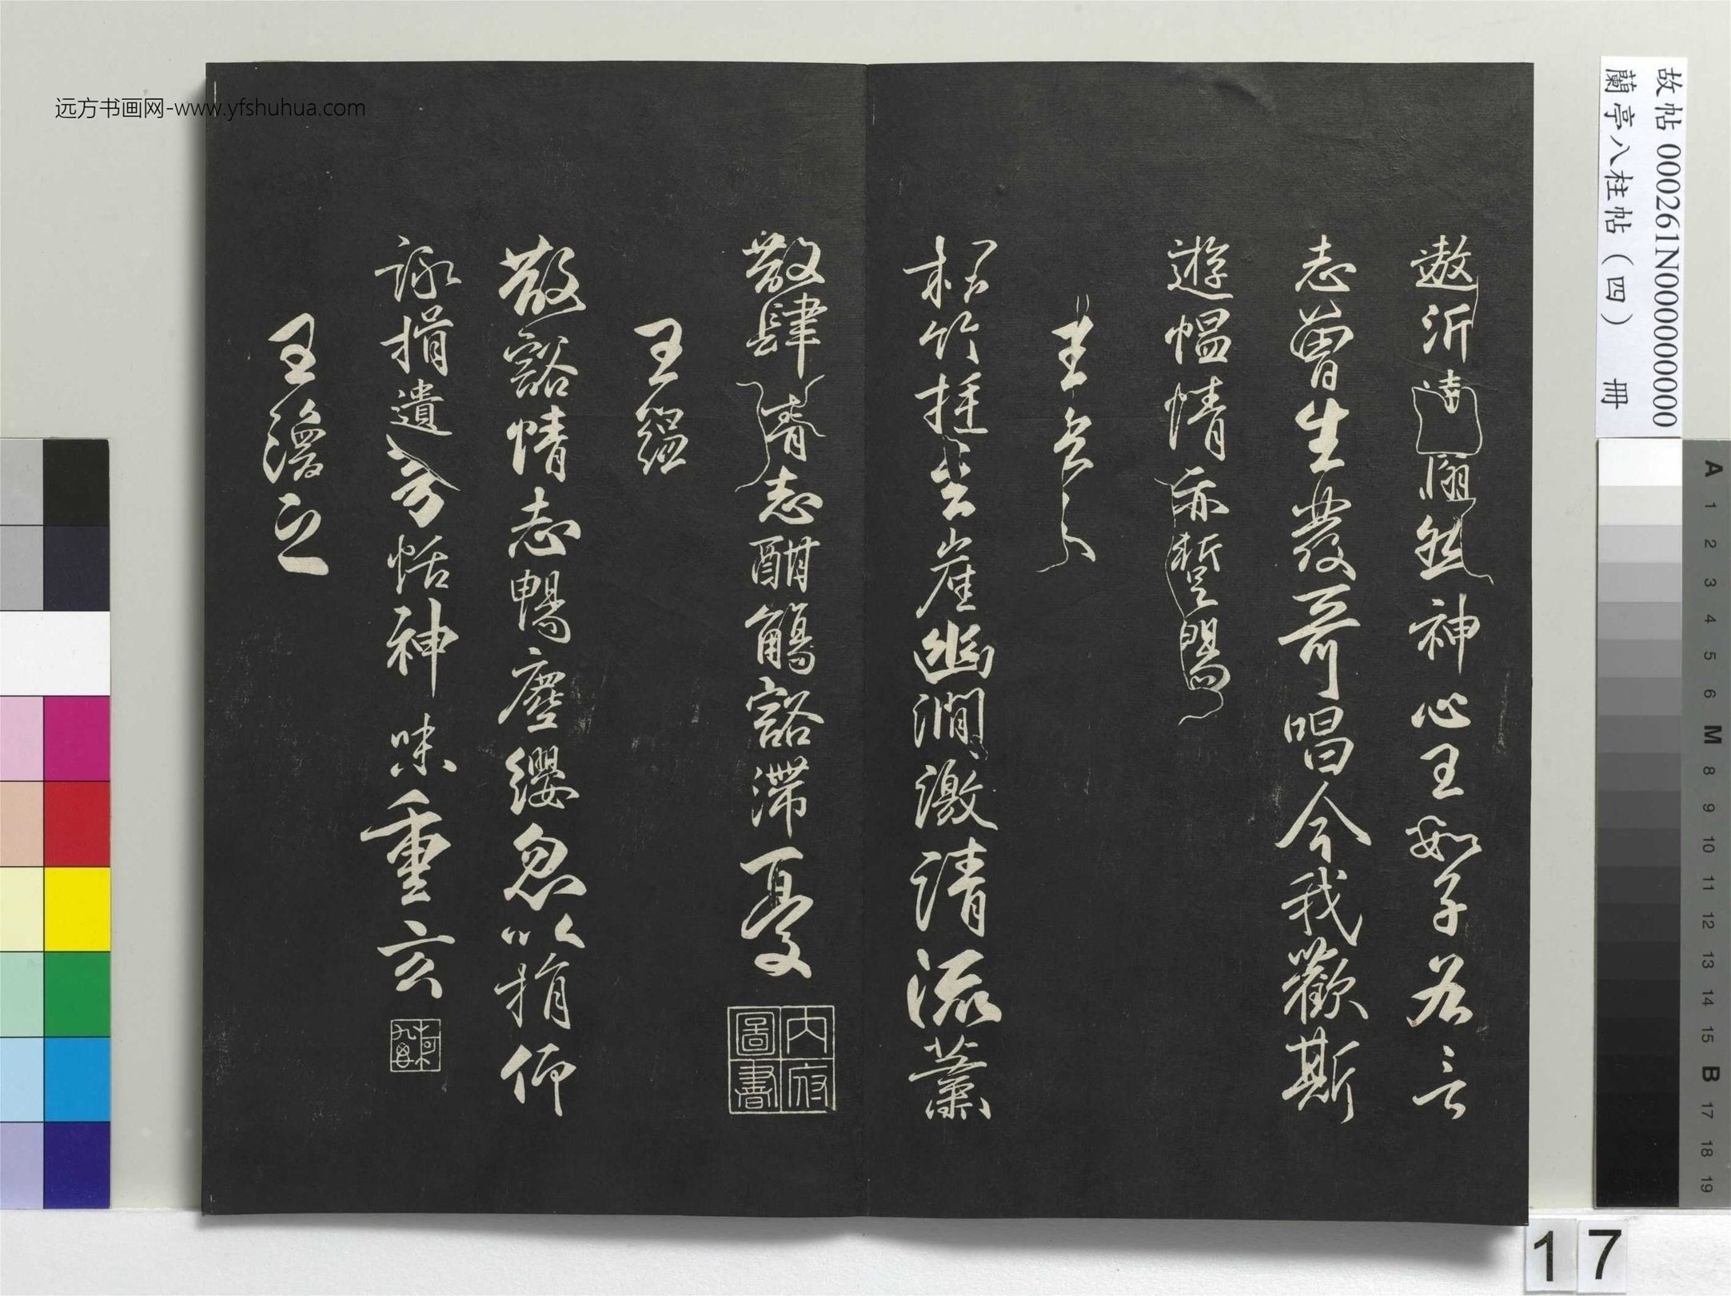 遨沂 翛然神心王數子各言
志曾生發奇唱今我歡斯
遊慍情亦暫暢
王玄之
松竹挺岩崖幽澗激清流蕭
散肆情志酣觴豁滯憂
內府圖書
王緼
散豁情志暢塵纓忽以捐仰
詠捐遺芳恬神味重玄
王渙之
故帖 000261N000000000
蘭亭八柱帖（四） 冊
远方书画网-www.yfshuhua.com
A 1 2 3 4 5 6 M 8 9 10 11 12 13 14 15 B 17 18 19
17